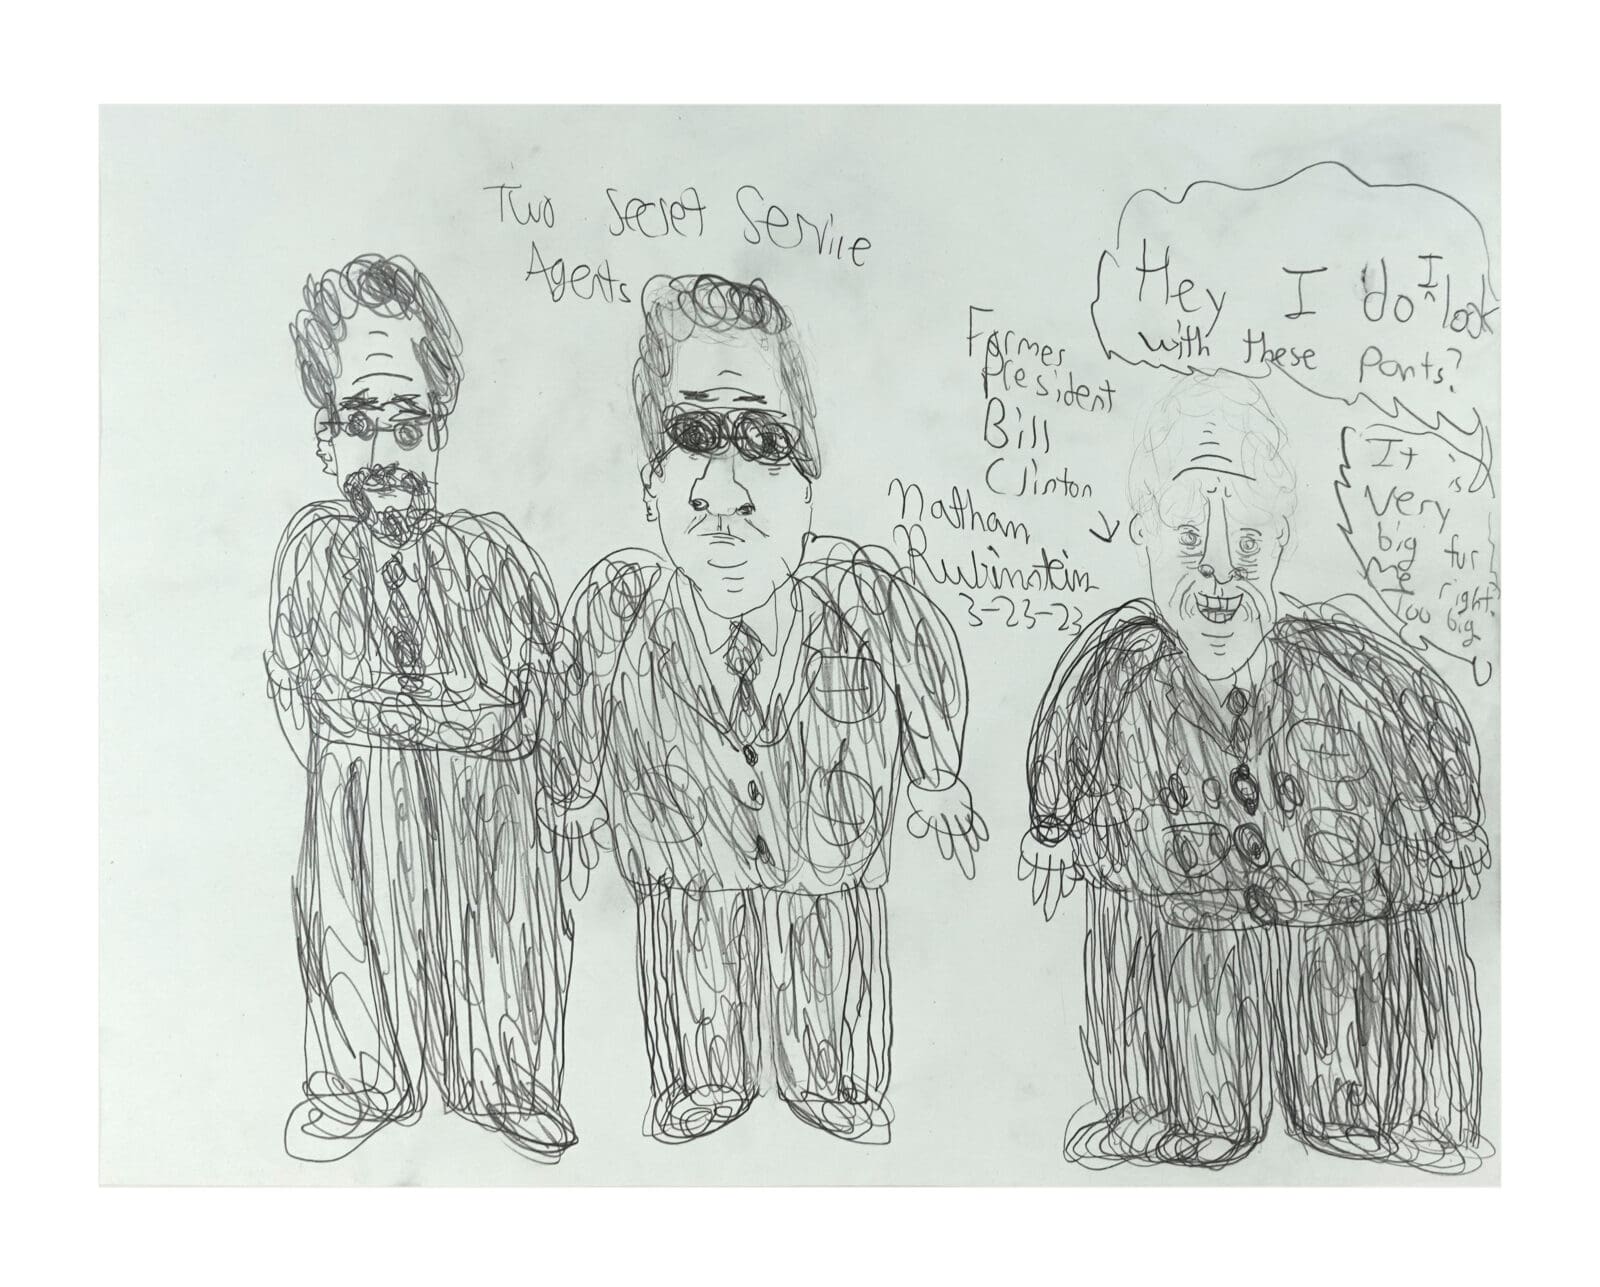 Two Secret Service
Agents
Former
President
Bill
Clinton
Nathan
Rubinstein
3-23-23
Hey I do I look
with these pants?
It is
very
big fur
me right?
too big